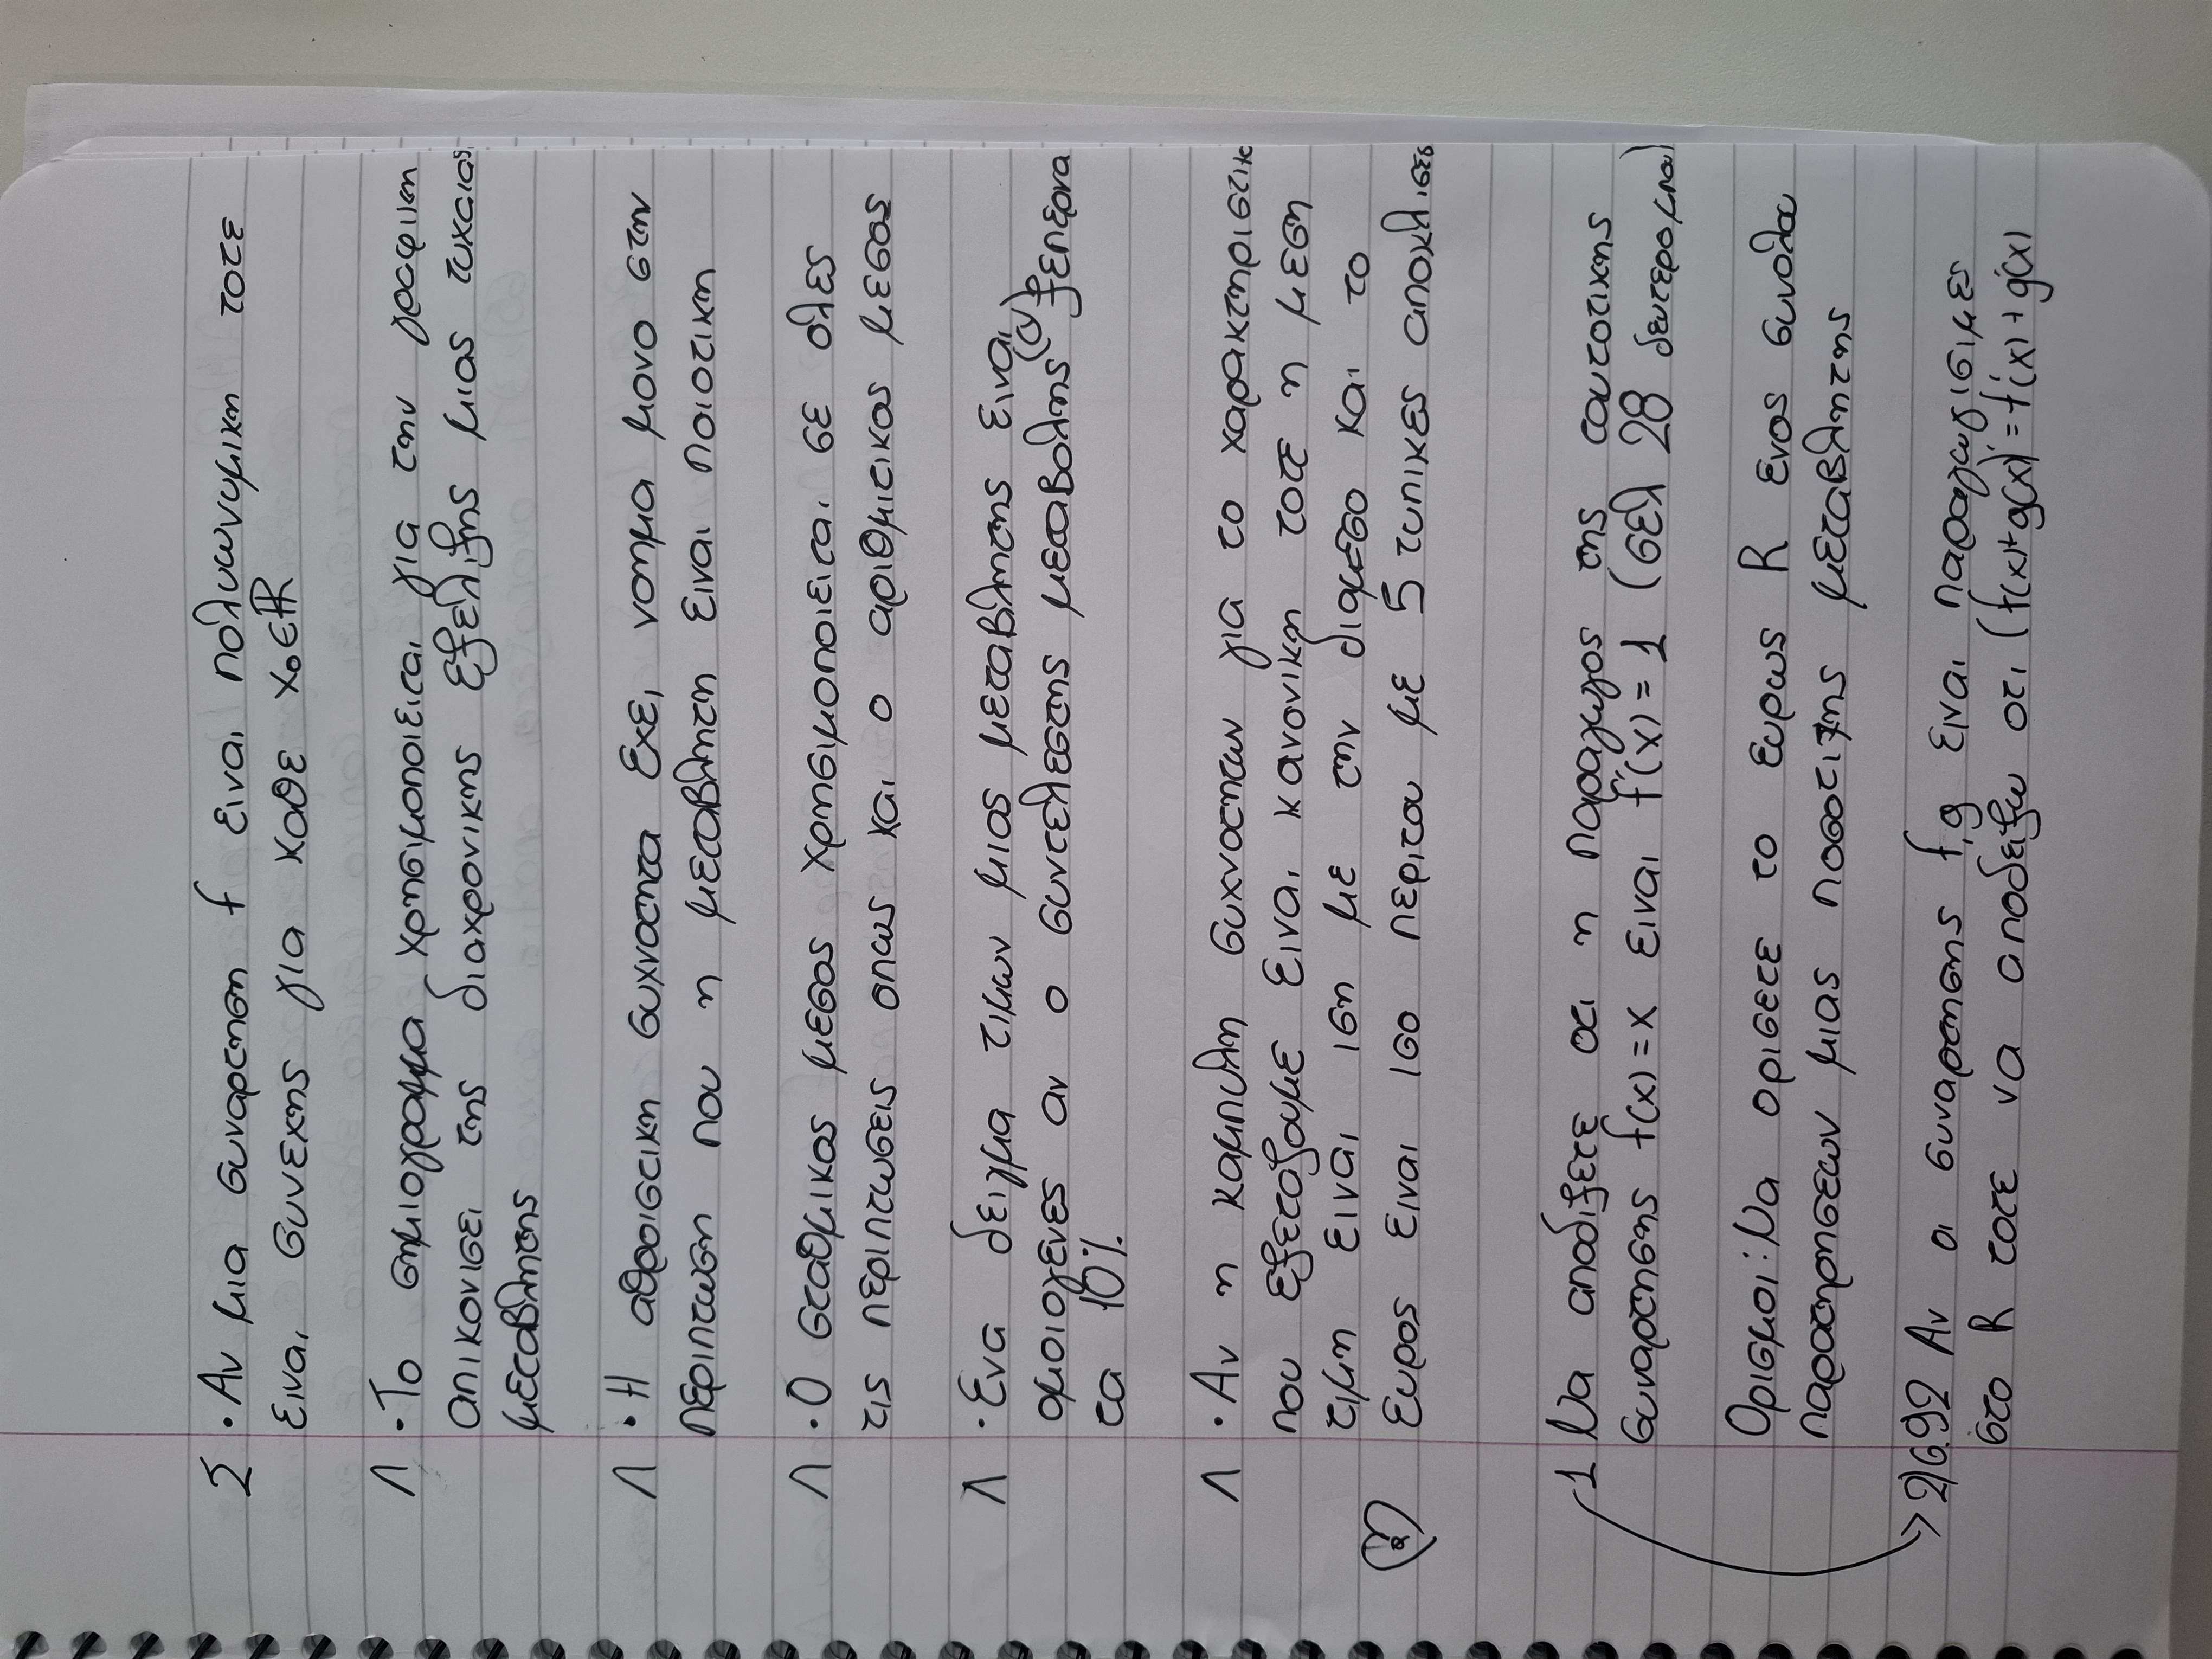 Σ • Αν μια συναρτηση f ειναι πολυωνυμικη τοτε
ειναι συνεχης για καθε x₀∈ℝ
Λ • Το σημιογραμμα χρησιμοποιειται για την γραφικη
απικονισει της διαχρονικης εξελιξης μιας τυχαιας
μεταβλητης
Λ • Η αθροιστικη συχνοτητα εχει νοημα μονο στην
περιπτωση που η μεταβλητη ειναι ποιοτικη
Λ • Ο σταθμικος μεσος χρησιμοποιειται σε ολες
τις περιπτωσεις οπως και ο αριθμιτικος μεσος
Λ • Ενα δειγμα τιμων μιας μεταβλητης ειναι
ομοιογενες αν ο συντελεστης μεταβολης (CV) ξεπερνα
τα 10%
Λ • Αν η καμπυλη συχνοτητων για το χαρακτηριστικ
που εξεταζουμε ειναι κανονικη τοτε η μεση
τιμη ειναι ιση με την διαμεσο και το
Ευρος ειναι ισο περιπου με 5 τυπικες αποκλισεις
1 Να αποδιξετε οτι η παραγωγος της ταυτοτικης
συναρτησης f(x)=x ειναι f'(x)=1 (σελ 28 δευτερο μπλου)
Ορισμοι: Να ορισετε το ευρως R ενος συνολου
παρατηρησεων μιας ποσοτικης μεταβλητης
2)σ.92 Αν οι συναρτησης f,g ειναι παραγωγισιμες
στο R τοτε να αποδειξω οτι (f(x)+g(x))'=f'(x)+g'(x)